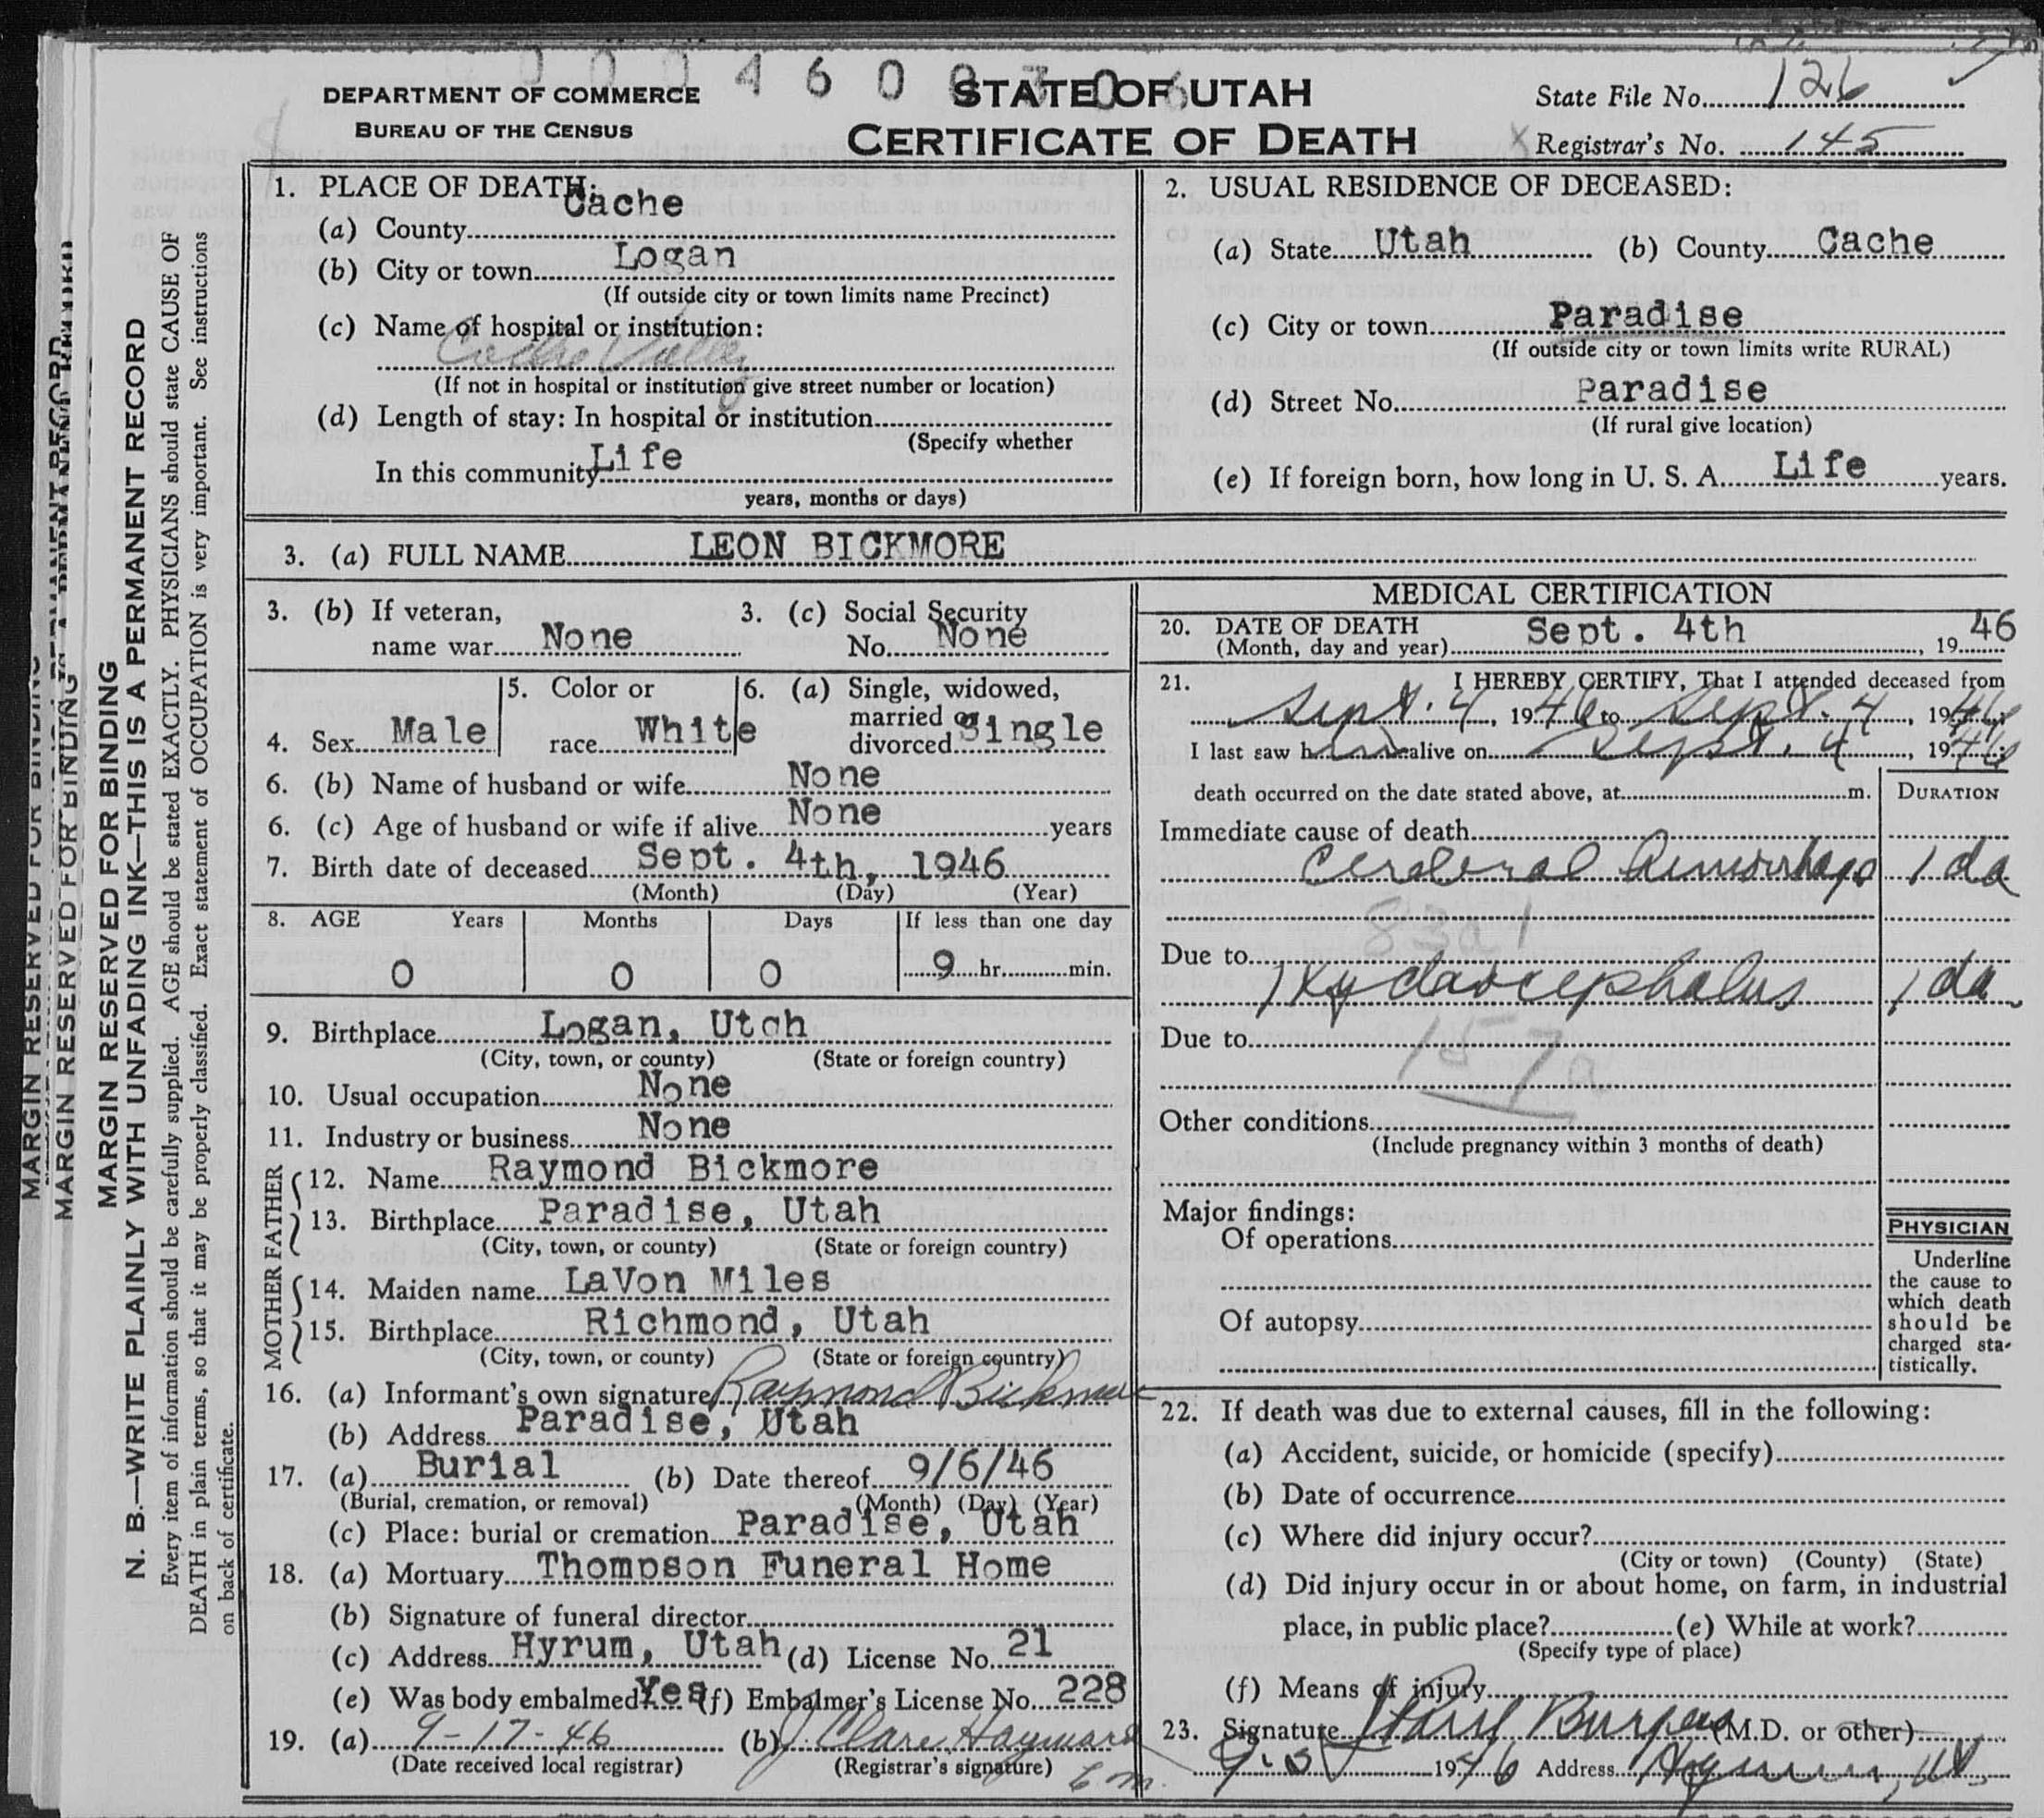 0 0 0 4 6 0 0 3 0 6
DEPARTMENT OF COMMERCE
BUREAU OF THE CENSUS
STATE OF UTAH
CERTIFICATE OF DEATH
State File No. 126
X Registrar's No. 145
1. PLACE OF DEATH:
(a) County Cache
(b) City or town Logan
(If outside city or town limits name Precinct)
(c) Name of hospital or institution:
Cache Valley
(If not in hospital or institution give street number or location)
(d) Length of stay: In hospital or institution
(Specify whether
In this community Life
years, months or days)
2. USUAL RESIDENCE OF DECEASED:
(a) State Utah (b) County Cache
(c) City or town Paradise
(If outside city or town limits write RURAL)
(d) Street No. Paradise
(If rural give location)
(e) If foreign born, how long in U. S. A. Life years.
3. (a) FULL NAME LEON BICKMORE
3. (b) If veteran,
name war None
3. (c) Social Security
No. None
4. Sex Male
5. Color or
race White
6. (a) Single, widowed,
married or
divorced Single
6. (b) Name of husband or wife None
6. (c) Age of husband or wife if alive None years
7. Birth date of deceased Sept. 4th, 1946
(Month) (Day) (Year)
8. AGE Years Months Days If less than one day
0 0 0 9 hr. min.
9. Birthplace Logan, Utah
(City, town, or county) (State or foreign country)
10. Usual occupation None
11. Industry or business None
FATHER
12. Name Raymond Bickmore
13. Birthplace Paradise, Utah
(City, town, or county) (State or foreign country)
MOTHER
14. Maiden name LaVon Miles
15. Birthplace Richmond, Utah
(City, town, or county) (State or foreign country)
16. (a) Informant's own signature Raymond Bickmore
(b) Address Paradise, Utah
17. (a) Burial (b) Date thereof 9/6/46
(Burial, cremation, or removal) (Month) (Day) (Year)
(c) Place: burial or cremation Paradise, Utah
18. (a) Mortuary Thompson Funeral Home
(b) Signature of funeral director
(c) Address Hyrum, Utah (d) License No. 21
(e) Was body embalmed? Yes (f) Embalmer's License No. 228
19. (a) 9-17-46 (b) J. Clare Hayward
(Date received local registrar) (Registrar's signature)
MEDICAL CERTIFICATION
20. DATE OF DEATH
(Month, day and year) Sept. 4th, 1946
21. I HEREBY CERTIFY, That I attended deceased from
Sept. 4, 1946 to Sept. 4, 1946
I last saw him alive on Sept. 4, 1946
death occurred on the date stated above, at m.
DURATION
Immediate cause of death
Cerebral hemorrhage 1 da
Due to
Hydrocephalus 1 da
Due to
157a
Other conditions
(Include pregnancy within 3 months of death)
Major findings:
Of operations
Of autopsy
PHYSICIAN
Underline
the cause to
which death
should be
charged sta-
tistically.
22. If death was due to external causes, fill in the following:
(a) Accident, suicide, or homicide (specify)
(b) Date of occurrence
(c) Where did injury occur?
(City or town) (County) (State)
(d) Did injury occur in or about home, on farm, in industrial
place, in public place? (e) While at work?
(Specify type of place)
(f) Means of injury
23. Signature Burgess (M.D. or other)
1946 Address Hyrum, Ut.
MARGIN RESERVED FOR BINDING
MARGIN RESERVED FOR BINDING
MARGIN RESERVED FOR BINDING
N. B.—WRITE PLAINLY WITH UNFADING INK—THIS IS A PERMANENT RECORD
Every item of information should be carefully supplied. AGE should be stated EXACTLY. PHYSICIANS should state CAUSE OF
DEATH in plain terms, so that it may be properly classified. Exact statement of OCCUPATION is very important. See instructions
on back of certificate.